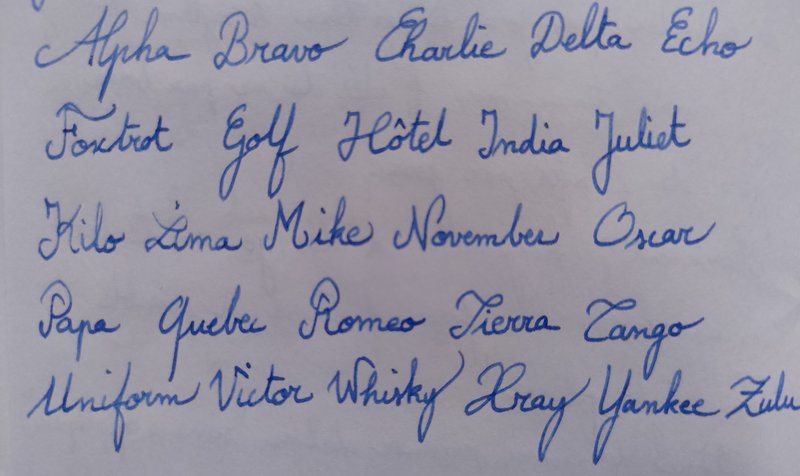 Alpha Bravo Charlie Delta Echo
Foxtrot Golf Hôtel India Juliet
Kilo Lima Mike November Oscar
Papa Quebec Romeo Tierra Tango
Uniform Victor Whisky Xray Yankee Zulu